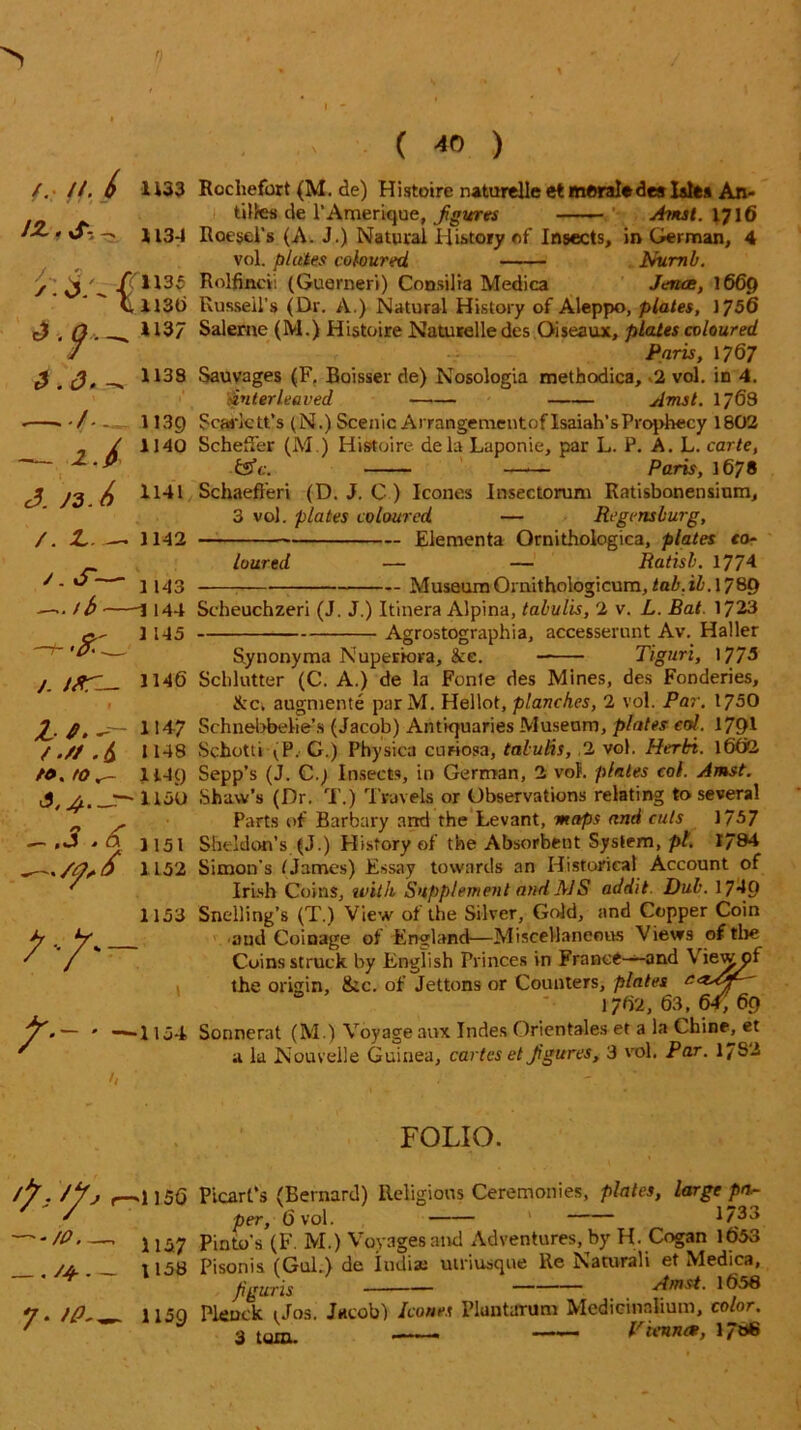 ( 40 )
1. 11. 6 1133 Rochefort (M. de) Histoire naturelle et morale des Isles An-
tilles de l'Amerique, figures —— Amst. 1716
12. 5. - 1134 Roesel's (A. J.) Natural History of Insects, in German, 4
vol. plates coloured —— Nurnb.
1135 Rolfincii (Guerneri) Consilia Medica Jenæ, 1669
1136 Russell's (Dr. A.) Natural History of Aleppo, plates, 1756
3. 9. — 1137 Salerne (M.) Histoire Naturelle des Oiseaux, plates coloured
Paris, 1767
3. 3. - 1138 Sauvages (F. Boisser de) Nosologia methodica, 2 vol. in 4.
interleaved —— —— Amst. 1763
— 1. — 1139 Scarlett's (N.) Scenic Arrangement of Isaiah's Prophecy 1802
— 2. 6 1140 Scheffer (M.) Histoire de la Laponie, par L. P. A. L. carte,
&c. —— —— Paris, 1678
3. 13. 6 1141 Schaefferi (D. J. C.) Icones Insectorum Ratisbonensium,
3 vol. plates coloured — Regensburg,
1. 2. — 1142 —— Elementa Ornithologica, plates co-
loured — — Ratisb. 1774
1. 5 — 1143 —— Museum Ornithologicum, tab. ib. 1789
—. 16 — 1144 Scheuchzeri (J. J.) Itinera Alpina, tabulis, 2 v. L. Bat. 1723
— 8. — 1145 —— Agrostographia, accesserunt Av. Haller
Synonyma Nuperiora, &c. —— Tiguri, 1775
1. 18 — 1146 Schlutter (C. A.) de la Fonte des Mines, des Fonderies,
&c. augmenté par M. Hellot, planches, 2 vol. Par. 1750
2. 8. — 1147 Schnebbelie's (Jacob) Antiquaries Museum, plates col. 1791
1. 11. 6 1148 Schotti (P. G.) Physica curiosa, tabulis, 2 vol. Herbi. 1662
10. 10. — 1149 Sepp's (J. C.) Insects, in German, 2 vol. plates col. Amst.
3. 4. — 1150 Shaw's (Dr. T.) Travels or Observations relating to several
Parts of Barbary and the Levant, maps and cuts 1757
— . 3. 6 1151 Sheldon's (J.) History of the Absorbent System, pl. 1784
—. 19. 6 1152 Simon's (James) Essay towards an Historical Account of
Irish Coins, with Supplement and MS addit. Dub. 1749
7. 7. — 1153 Snelling's (T.) View of the Silver, Gold, and Copper Coin
and Coinage of England—Miscellaneous Views of the
Coins struck by English Princes in France—and View of
the origin, &c. of Jettons or Counters, plates
1762, 63, 64, 69
7. — . — 1154 Sonnerat (M.) Voyage aux Indes Orientales et a la Chine, et
a la Nouvelle Guinea, cartes et figures, 3 vol. Par. 1782
FOLIO.
17. 17. 1156 Picart's (Bernard) Religious Ceremonies, plates, large pa-
per, 6 vol. —— —— 1733
— . 10. — 1157 Pinto's (F. M.) Voyages and Adventures, by H. Cogan 1653
— . 14. — 1158 Pisonis (Gul.) de Indiæ utriusque Re Naturali et Medica,
figuris —— —— Amst. 1658
7. 10. — 1159 Plenck (Jos. Jacob) Icones Plantarum Medicinalium, color.
3 tom. —— —— Viennæ, 1788